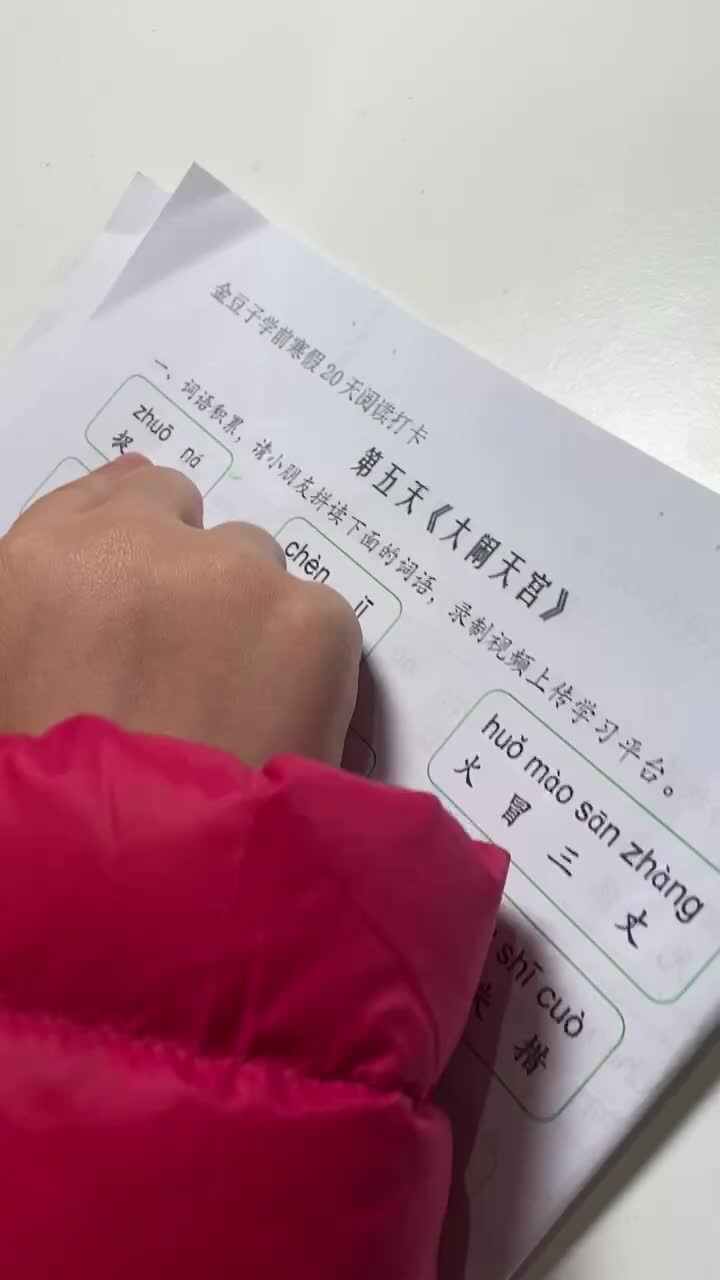 金豆子学前寒假20天阅读打卡
第五天《大闹天宫》
一、词语积累，请小朋友拼读下面的词语，录制视频上传学习平台。
zhuō ná
捉
chèn jī
huǒ mào sān zhàng
火冒三丈
shī cuò
失措